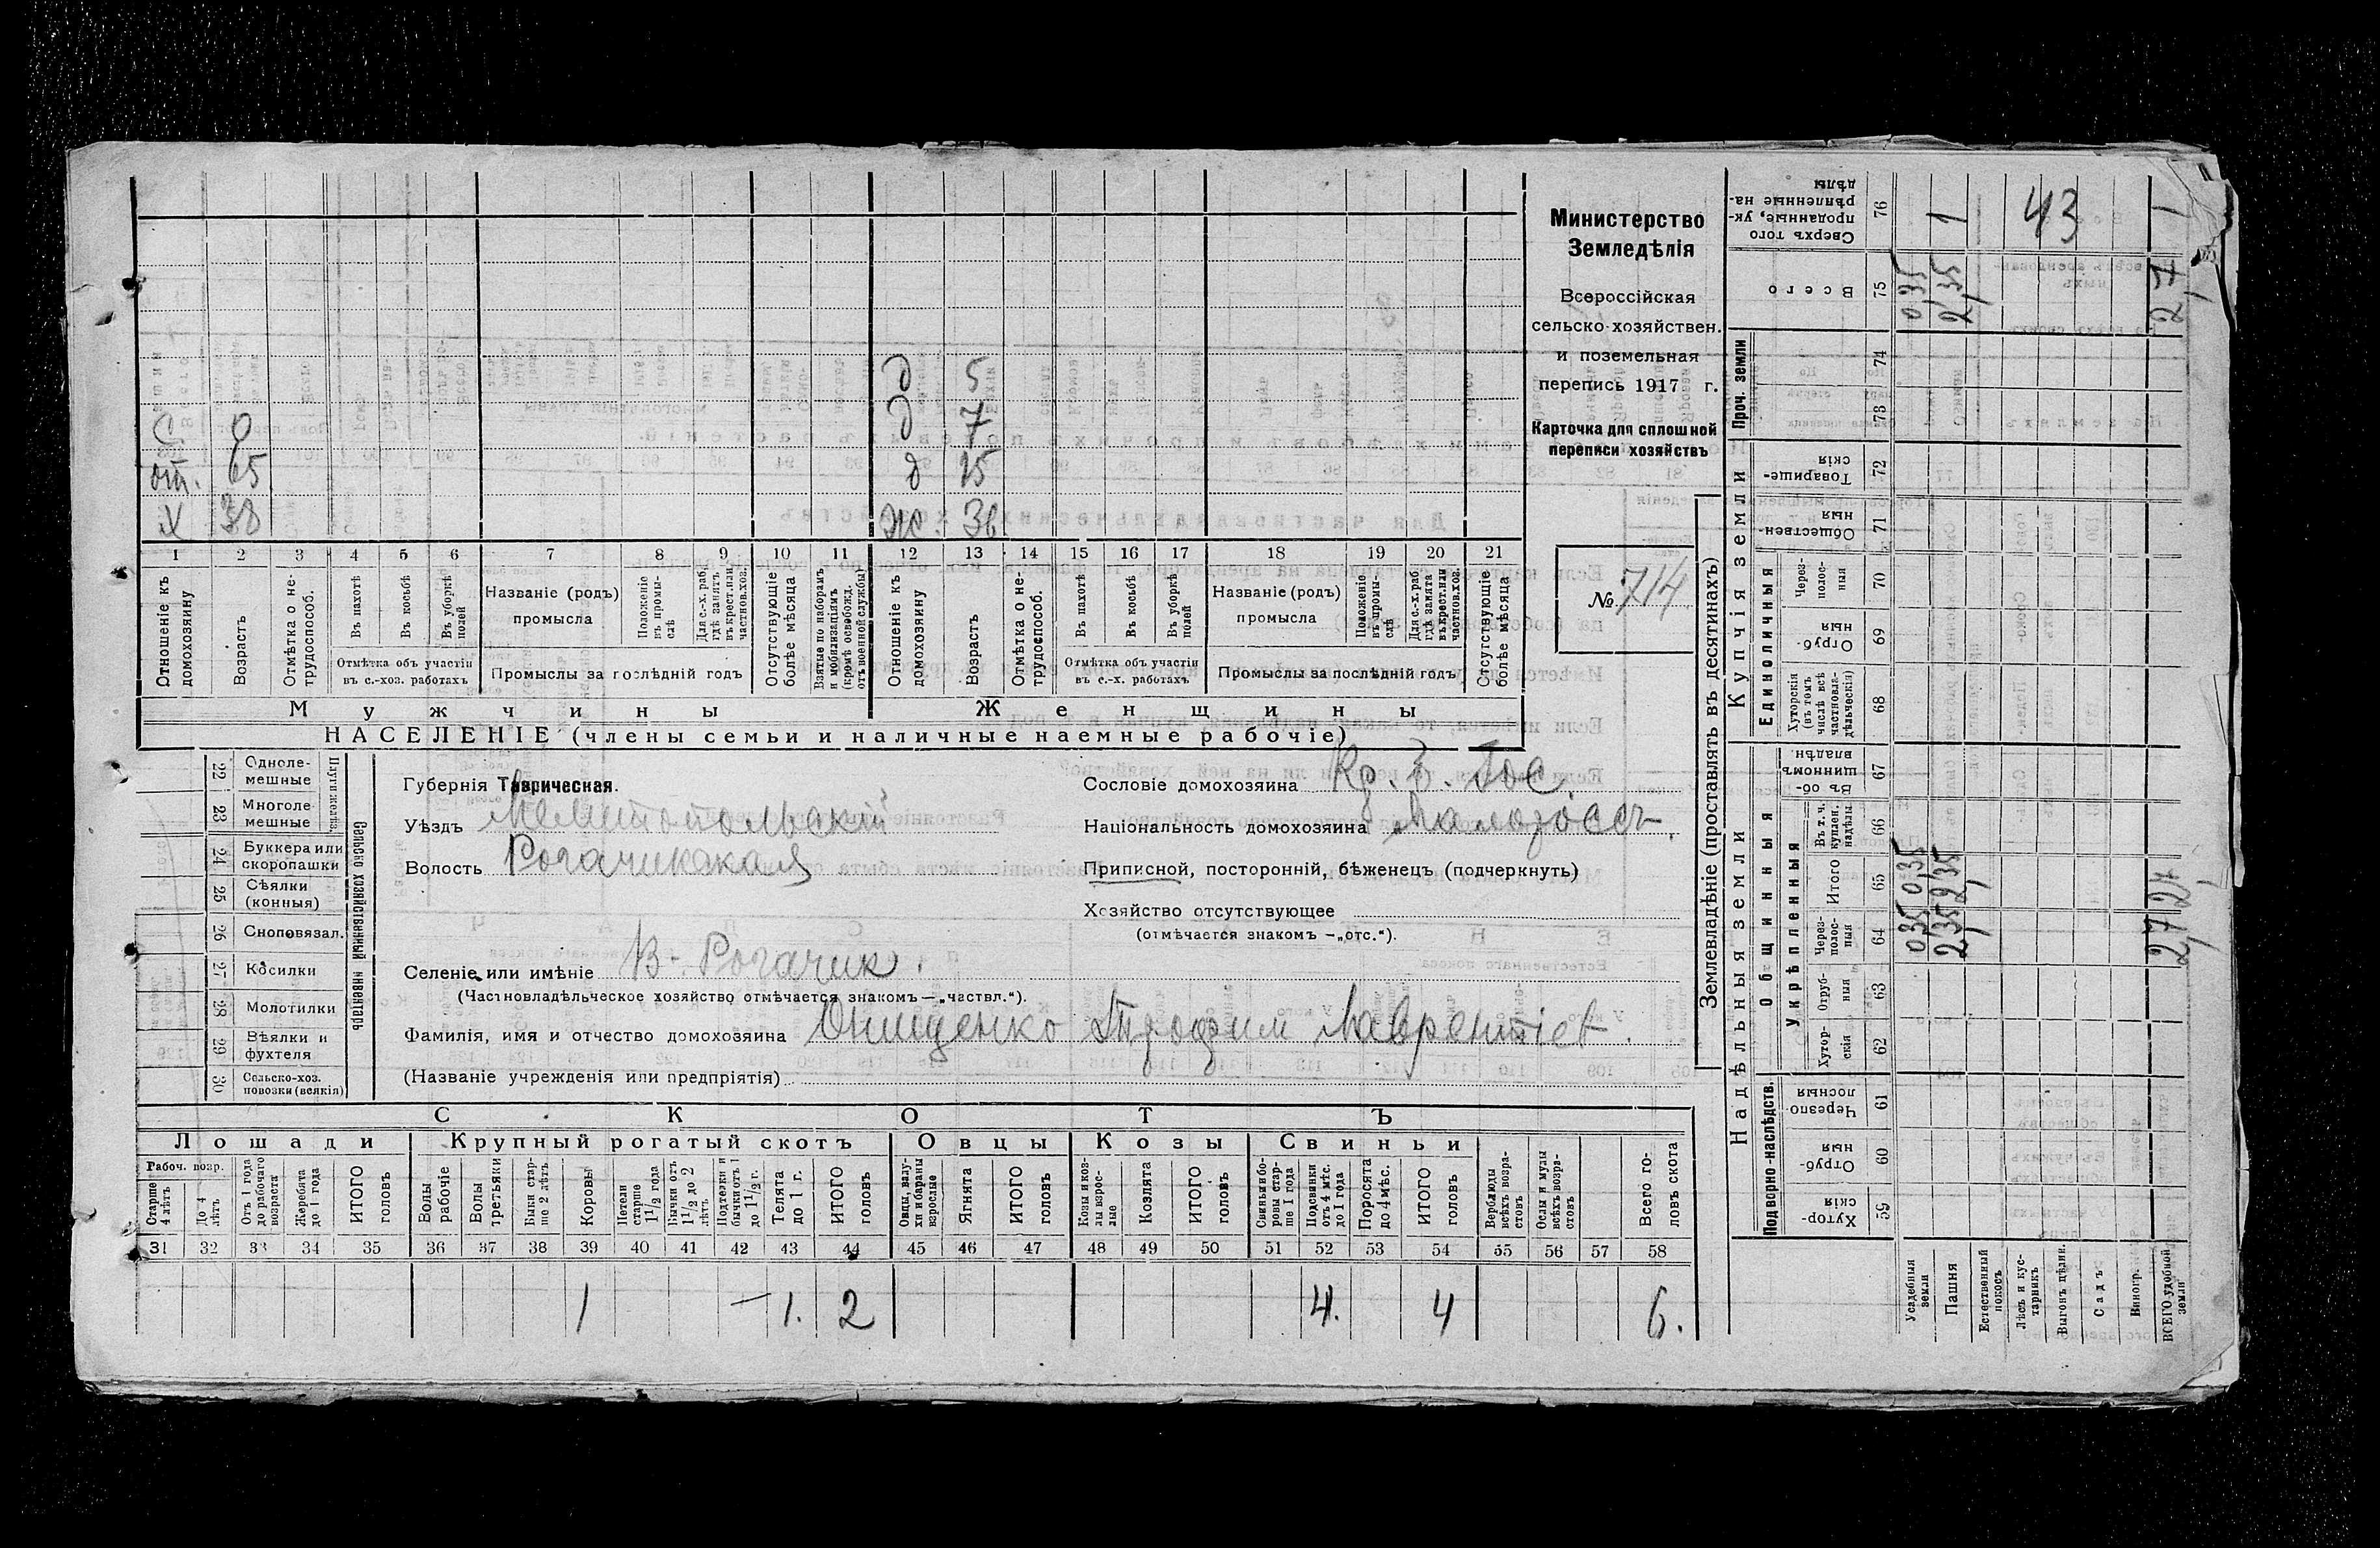 д 5
С 9 д 7
от. 65 д 15
Х 38 ж. 36
1 2 3 4 5 6 7 8 9 10 11 12 13 14 15 16 17 18 19 20 21
Отношеніе къ домохозяину
Возрастъ
Отмѣтка о нетрудоспособ.
Въ пахотѣ
Въ косьбѣ
Въ уборкѣ полей
Отмѣтка объ участіи въ с.-хоз. работахъ
Названіе (родъ) промысла
Положеніе въ промыслѣ
Для с.-х. раб. гдѣ занятъ въ крест. или частнов. хоз.
Промыслы за послѣдній годъ
Отсутствующіе болѣе мѣсяца
Взятые по наборамъ и мобилизаціямъ (кромѣ освобожд. отъ военной службы)
Отношеніе къ домохозяину
Возрастъ
Отмѣтка о нетрудоспособ.
Въ пахотѣ
Въ косьбѣ
Въ уборкѣ полей
Отмѣтка объ участіи въ с.-х. работахъ
Названіе (родъ) промысла
Положеніе въ промыслѣ
Для с.-х. раб. гдѣ занята въ крест. или частнов. хоз.
Промыслы за послѣдній годъ
Отсутствующіе болѣе мѣсяца
Мужчины Женщины
НАСЕЛЕНІЕ (члены семьи и наличные наемные рабочіе)
Министерство
Земледѣлія
Всероссійская
сельско-хозяйствен.
и поземельная
перепись 1917 г.
Карточка для сплошной
переписи хозяйствъ
№ 714
22 Одноле-мешные
23 Многоле-мешные
24 Буккера или скоропашки
25 Сѣялки (конныя)
26 Сноповязал.
27 Косилки
28 Молотилки
29 Вѣялки и фухтеля
30 Сельско-хоз. повозки (всякія)
Сельско хозяйственный инвентарь
Губернія Таврическая.
Уѣздъ Мелитопольскій
Волость Рогачикская
Селеніе или имѣніе В-Рогачик.
(Частновладѣльческое хозяйство отмѣчается знакомъ — „частвл.“).
Фамилія, имя и отчество домохозяина Онищенко Трофим Лаврентіев.
(Названіе учрежденія или предпріятія)
Сословіе домохозяина Кр. б. Гос.
Національность домохозяина Малоросс.
Приписной, посторонній, бѣженецъ (подчеркнуть)
Хозяйство отсутствующее
(отмѣчается знакомъ — „отс.“).
СКОТЪ
Лошади Крупный рогатый скотъ Овцы Козы Свиньи
Рабоч. возр.
Старше 4 лѣтъ
До 4 лѣтъ
Отъ 1 года до рабочаго возраста
Жеребята до 1 года
ИТОГО головъ
Волы рабочіе
Волы третьяки
Быки старше 2 лѣтъ
Коровы
Нетели старше 1 1/2 года
Бычки отъ 1 1/2 до 2 лѣтъ
Подтелки и бычки отъ 1 до 1 1/2 г.
Телята до 1 г.
ИТОГО головъ
Овцы, валухи и бараны взрослые
Ягнята
ИТОГО головъ
Козы и козлы взрослые
Козлята
ИТОГО головъ
Свиньи и боровы старше 1 года
Подсвинки отъ 4 мѣс. до 1 года
Поросята до 4 мѣс.
ИТОГО головъ
Верблюды всѣхъ возрастовъ
Ослы и мулы всѣхъ возрастовъ
Всего головъ скота
31 32 33 34 35 36 37 38 39 40 41 42 43 44 45 46 47 48 49 50 51 52 53 54 55 56 57 58
1 — 1. 2 4. 4 6.
Землевладѣніе (проставлять въ десятинахъ)
Надѣльныя земли Купчія земли Проч. земли
Подворно-наслѣдств. Общинныя Единоличныя
Укрѣпленныя
Хуторскія 59
Отрубныя 60
Черезполосныя 61
Хуторскія 62
Отрубныя 63
Черезполосныя 64
Итого 65
Въ т. ч. куплен. надѣлы 66
Въ общинномъ владѣн. 67
Хуторскія (въ томъ числѣ всѣ частновладѣльческія) 68
Отрубныя 69
Черезполосныя 70
Общественныя 71
Товарищескія 72
73
74
Всего 75
Сверхъ того проданные, укрѣпленные надѣлы 76
Усадебныя земли 0,35 0,35 0,35
Пашня 2,35 2,35 2,35 1
Естественный покосъ
Лѣсъ и кустарникъ
Выгонъ цѣлин.
Садъ
Виногр.
ВСЕГО удобной земли 2,7 2,7 2,7 1
43